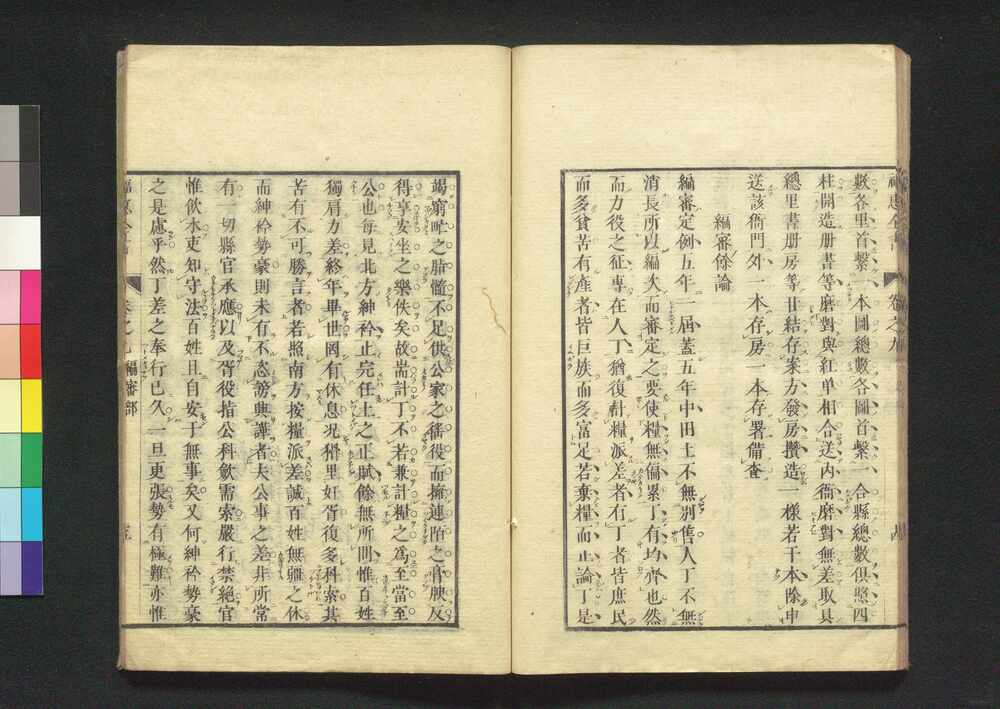 數各里首繫一本圖總數各圖首繫一合縣總數俱照四
柱開造册書等磨對與紅单相合送內衙磨對無差取具
總里書册房等甘結存案方發房攢造一樣若干本除申
送該衙門外一本存房一本存署備查
編審餘論
編審定例五年一屆蓋五年中田土不無別售人丁不無
消長所以編次而審定之要使糧無偏累丁有均齊也然
而力役之征專在人丁猶復計糧派差者有丁者皆庶民
而多貧苦有產者皆巨族而多富足若棄糧而止論丁是
竭窮甿之脂髓不足供公家之徭役而擁連陌之膏腴反
得享安坐之樂佚矣故耑計丁不若兼計糧之爲至當至
公也每見北方紳衿止完任土之正賦餘無所問惟百姓
獨肩力差終年畢世罔有休息况猾里奸胥復多科索其
苦有不可勝言者若照南方按糧派差誠百姓無疆之休
而紳衿勢豪則未有不恣謗興譁者夫公事之差非所常
有一切縣官承應以及胥役指公科斂需索嚴行禁絕官
惟飲水吏知守法百姓且自安于無事矣又何紳衿勢豪
之是慮乎然丁差之奉行已久一旦更張勢有極難亦惟
卷之九 編審部